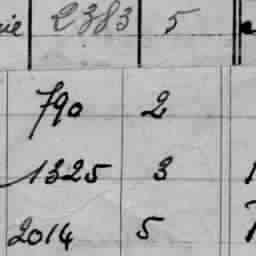 2383 5
790 2
1325 3
2014 5